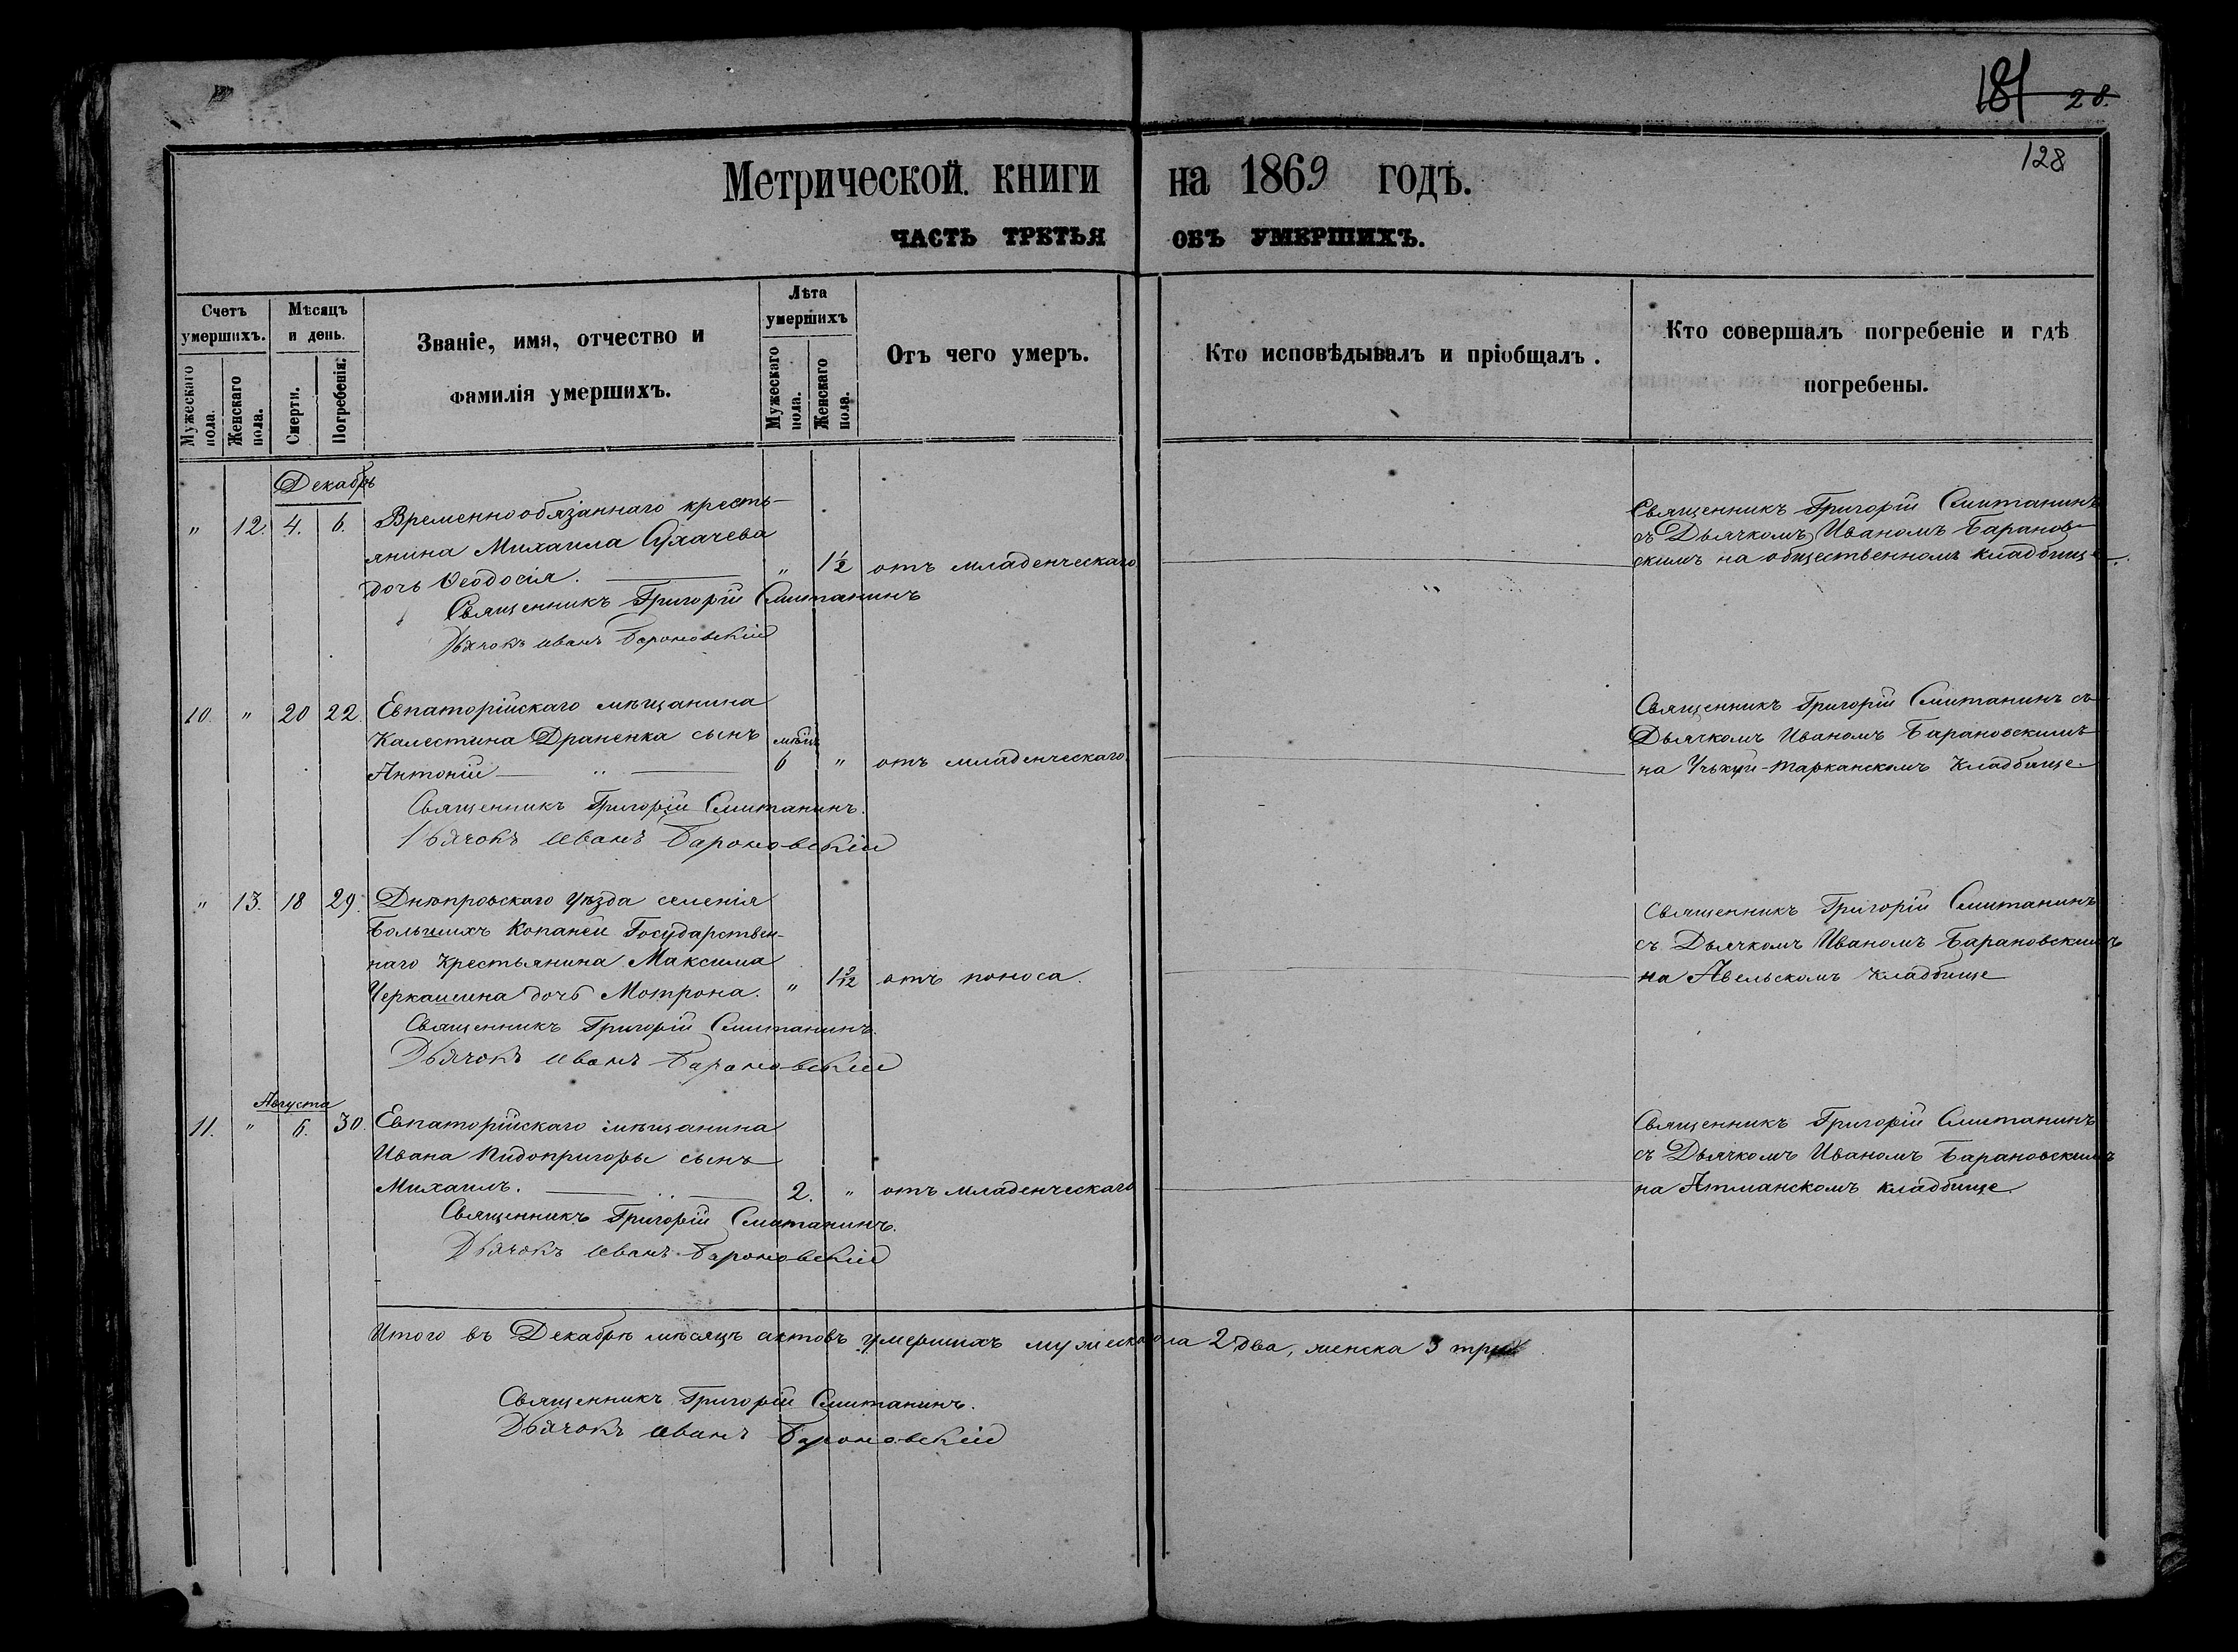 181 28.
128
Метрической книги на 1869 годъ.
ЧАСТЬ ТРЕТЬЯ ОБЪ УМЕРШИХЪ.
Счетъ умершихъ.
Мужескаго пола.
Женскаго пола.
Мѣсяцъ и день.
Смерти.
Погребенія.
Званіе, имя, отчество и фамилія умершихъ.
Лѣта умершихъ
Мужескаго пола.
Женскаго пола.
Отъ чего умеръ.
Кто исповѣдывалъ и пріобщалъ.
Кто совершалъ погребеніе и гдѣ погребены.
Декабрь
" 12. 4. 6. Временнообязаннаго кресть-
янина Михаила Сухачева
дочь Ѳеодосія. " 1½ отъ младенческаго
Священникъ Григорій Смитанинъ
съ Дьячкомъ Иваномъ Баранов-
скимъ на общественномъ кладбище.
Священникъ Григорій Смитанинъ
Дьячокъ Иванъ Барановскій
10. " 20 22. Евпаторійскаго мѣщанина
Калестина Драненка сынъ
Антоній 6 " отъ младенческаго
Священникъ Григорій Смитанинъ съ
Дьячкомъ Иваномъ Барановскимъ
на Учькуи-Тарканскомъ Кладбище.
Священникъ Григорій Смитанинъ.
Дьячокъ Иванъ Барановскій
" 13. 18 29. Днѣпровскаго уѣзда селенія
Большихъ Копаней Государствен-
наго Крестьянина Максима
Черкашина дочь Мотрона. " 1 9/12 отъ поноса.
Священникъ Григорій Смитанинъ
съ Дьячкомъ Иваномъ Барановскимъ
на Авельскомъ кладбище
Священникъ Григорій Смитанинъ.
Дьячокъ Иванъ Барановскій
Августа
11. " 6. 30. Евпаторійскаго мѣщанина
Ивана Пидопригоры сынъ
Михаилъ. 2. " отъ младенческаго
Священникъ Григорій Смитанинъ
съ Дьячкомъ Иваномъ Барановскимъ
на Атманскомъ кладбище.
Священникъ Григорій Смитанинъ.
Дьячокъ Иванъ Барановскій
Итого въ Декабрѣ мѣсяцѣ актовъ умершихъ мужеска пола 2 два, женска 3 три
Священникъ Григорій Смитанинъ.
Дьячокъ Иванъ Барановскій